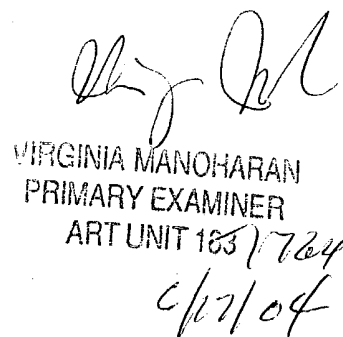 VIRGINIA MANOHARAN
PRIMARY EXAMINER
ART UNIT 163/1764
6/27/04